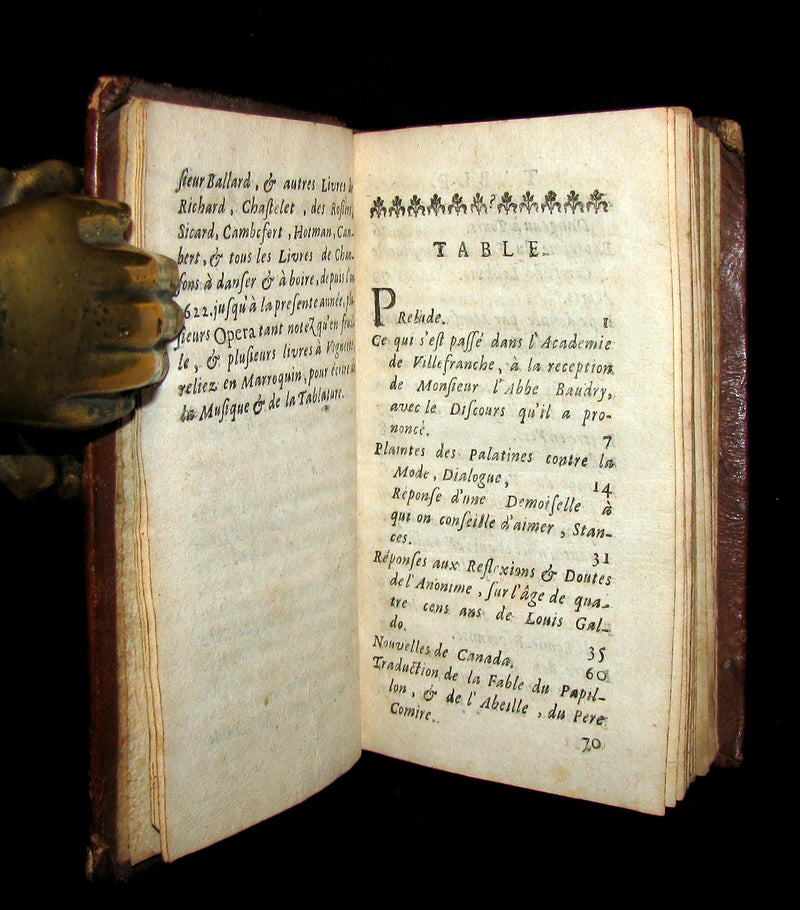 ſieur Ballard, & autres Livres de
Richard, Chaſtelet, des Roſiers,
Sicard, Cambefort, Hotman, Cam-
bert, & tous les Livres de Chan-
ſons à danſer & à boire, depuis l'an
1622. juſqu'à la preſente année,
ſieurs Opera tant notez qu'en
le, & pluſieurs livres à Vignette,
reliez en Marroquin, pour écrire de
la Muſique & de la Tablature.
TABLE.
PRelude. 1
Ce qui s'eſt paſſé dans l'Academie
de Villefranche, à la reception
de Monſieur l'Abbe Baudry,
avec le Diſcours qu'il a pro-
noncé. 7
Plaintes des Palatines contre la
Mode, Dialogue, 14
Réponſe d'une Demoiſelle à
qui on conſeille d'aimer, Stan-
ces. 31
Réponſes aux Reflexions & Doutes
de l'Anonime, ſur l'âge de qua-
tre cens ans de Louis Gal-
do. 35
Nouvelles de Canada. 60
Traduction de la Fable du Papil-
lon, & de l'Abeille, du Pere
Comire. 70